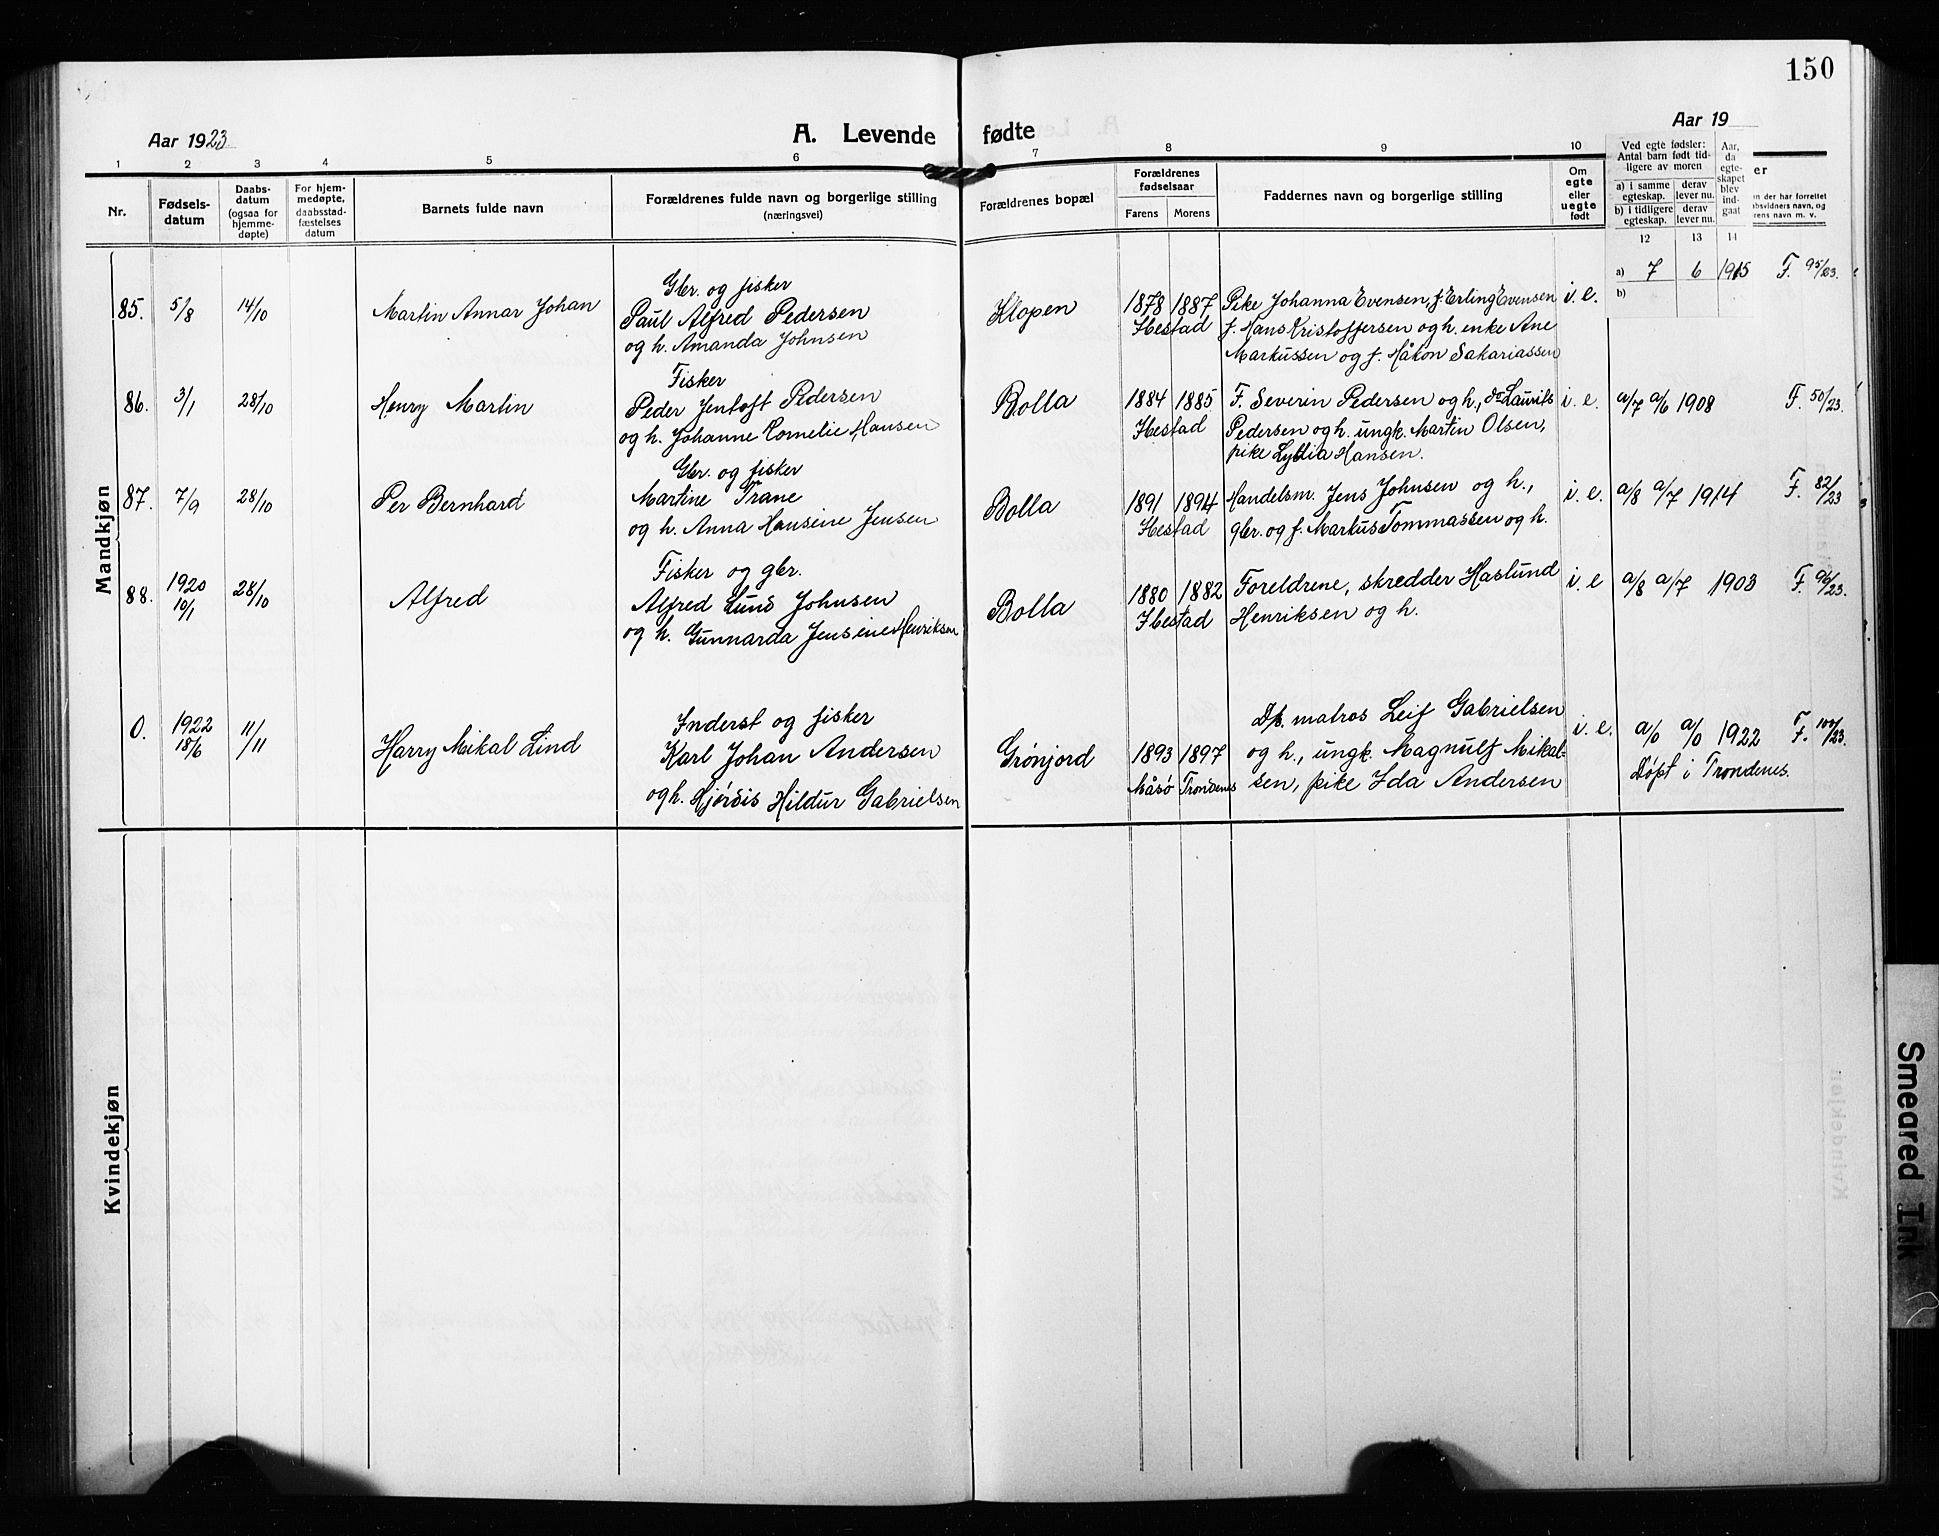 150
Aar 1923
A. Levende fødte
Aar 19
1 2 3 4 5 6 7 8 9 10
Nr.
Fødsels-
datum
Daabs-
datum
(ogsaa for
hjemme-
døpte)
For hjem-
medøpte,
daabsstad-
fæstelses
datum
Barnets fulde navn
Forældrenes fulde navn og borgerlige stilling
(næringsvei)
Forældrenes bopæl
Forældrenes
fødselsaar
Farens Morens
Faddernes navn og borgerlige stilling
Om
egte
eller
uegte
født
Ved egte fødsler:
Antal barn født tid-
ligere av moren
a) i samme
egteskap.
derav
lever nu.
b) i tidligere
egteskap.
derav
lever nu.
Aar,
da
egte-
skapet
blev
ind-
gaat
12 13 14
er
n der har forrettet
absvidners navn, og
rens navn m. v.
Mandkjøn
85. 5/8 14/10 Martin Annar Johan
Gbr. og fisker
Paul Alfred Pedersen
og h. Amanda Johnsen
Klopen
1878 1887
Ibestad
Pike Johanna Evensen, f. Erling Evensen
f. Hans Kristoffersen og h. enke Ane
Markussen og f. Håkon Sakariassen
i. e.
a) 7 6 1915 F. 95/23.
b)
86. 3/1 28/10 Henry Martin
Fisker
Peder Jentoft Pedersen
og h. Johanne Kornelie Hansen
Bolla
1884 1885
Ibestad
F. Severin Pedersen og h., do Laurits
Pedersen og h. ungk. Martin Olsen,
pike Lydia Hansen.
i. e. a/7 a/6 1908 F. 50/23.
87. 7/9 28/10 Per Bernhard
Gbr. og fisker
Martine Trane
og h. Anna Hansine Jensen
Bolla
1891 1894
Ibestad
Handelsm. Jens Johnsen og h.,
gbr. og f. Markus Tommassen og h.
i. e. a/8 a/7 1914 F. 82/23
88. 1920 10/1 28/10 Alfred
Fisker og gbr.
Alfred Lund Johnsen
og h. Gunnarda Jensine Henriksen
Bolla
1880 1882
Ibestad
Foreldrene, skredder Haslund
Henriksen og h.
i. e a/8 a/7 1903 F. 96/23.
0. 1922 18/6 11/11 Harry Mikal Lind
Inderst og fisker
Karl Johan Andersen
og h. Hjørdis Hildur Gabrielsen
Grønjord
1893 1897
Måsø Trondenes
Dp. matros Leif Gabrielsen
og h., ungk. Magnulf Mikal-
sen, pike Ida Andersen
i. e. a/0 a/0 1922 F. 100/23.
Døpt i Trondenes.
Kvindekjøn
Smeared Ink